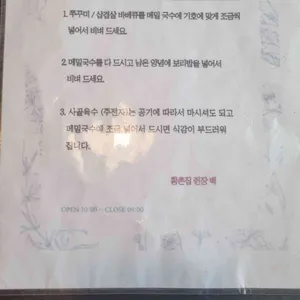 1. 쭈꾸미 / 삼겹살 바베큐를 메밀 국수에 기호에 맞게 조금씩
넣어서 비벼 드세요.
2. 메밀국수를 다 드시고 남은 양념에 보리밥을 넣어서
비벼 드세요.
3. 사골육수 (주전자)는 공기에 따라서 마시셔도 되고
메밀국수에 조금 넣어서 드시면 식감이 부드러워
집니다.
황촌집 쥔장 백
OPEN 10:00 ~ CLOSE 09:00